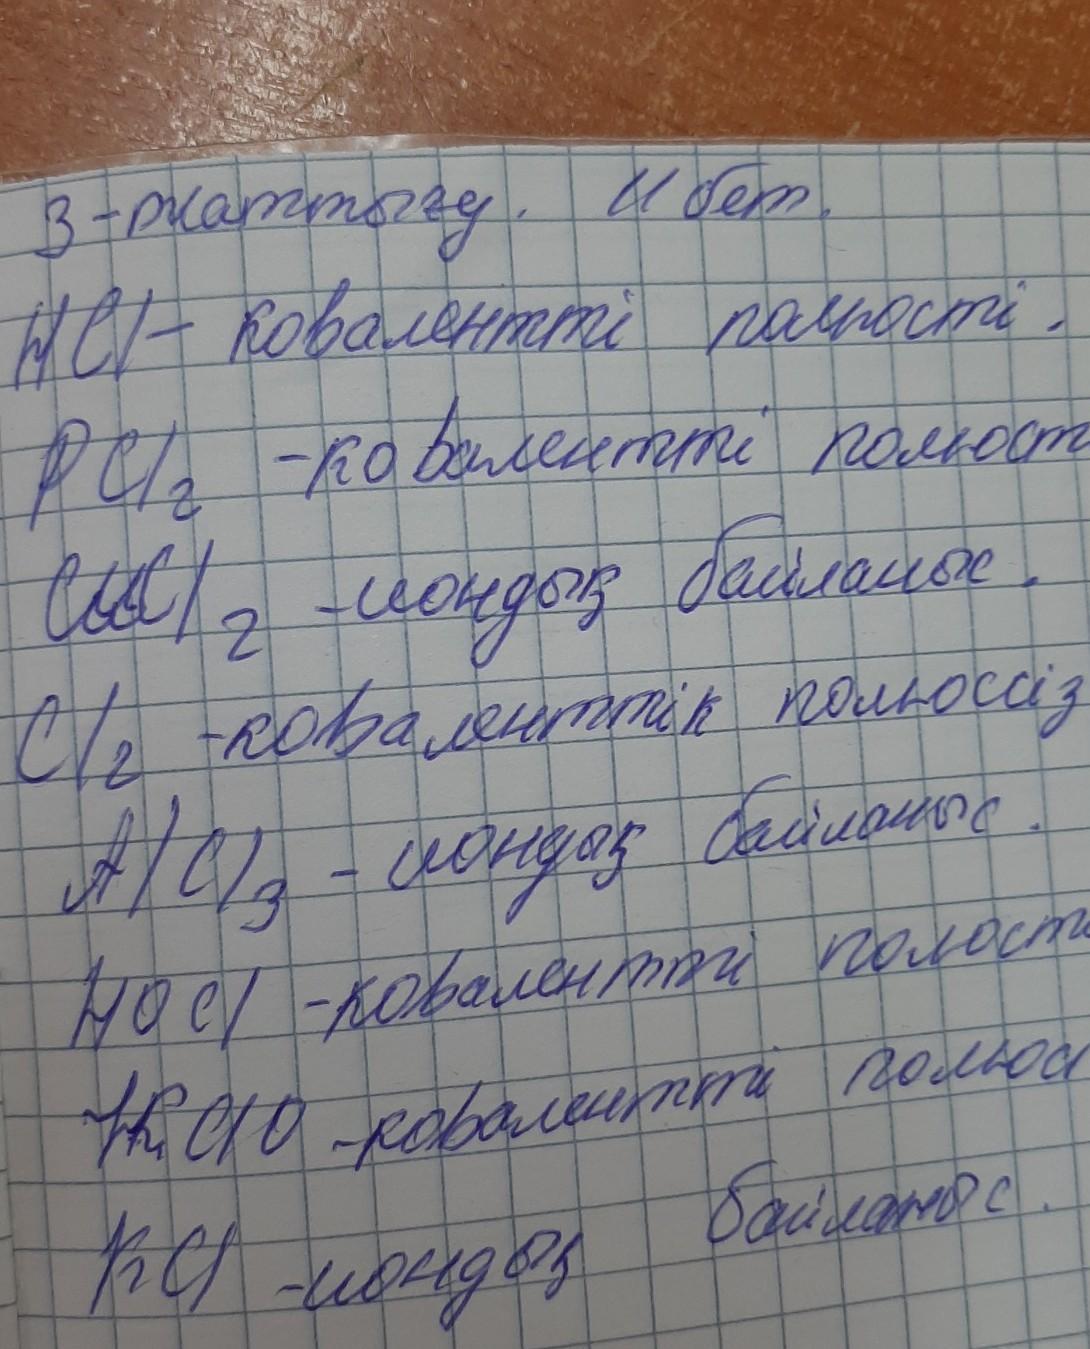 3-жаттығу. 11 бет.
HCl- ковалентті полюсті.
PCl₂ -ковалентті полюст
CuCl₂ -иондық байланыс.
Cl₂ -коваленттік полюссіз
AlCl₃ - иондық байланыс.
HOCl -ковалентті полюсті
KClO -ковалентті полюс
KCl -иондық байланыс.